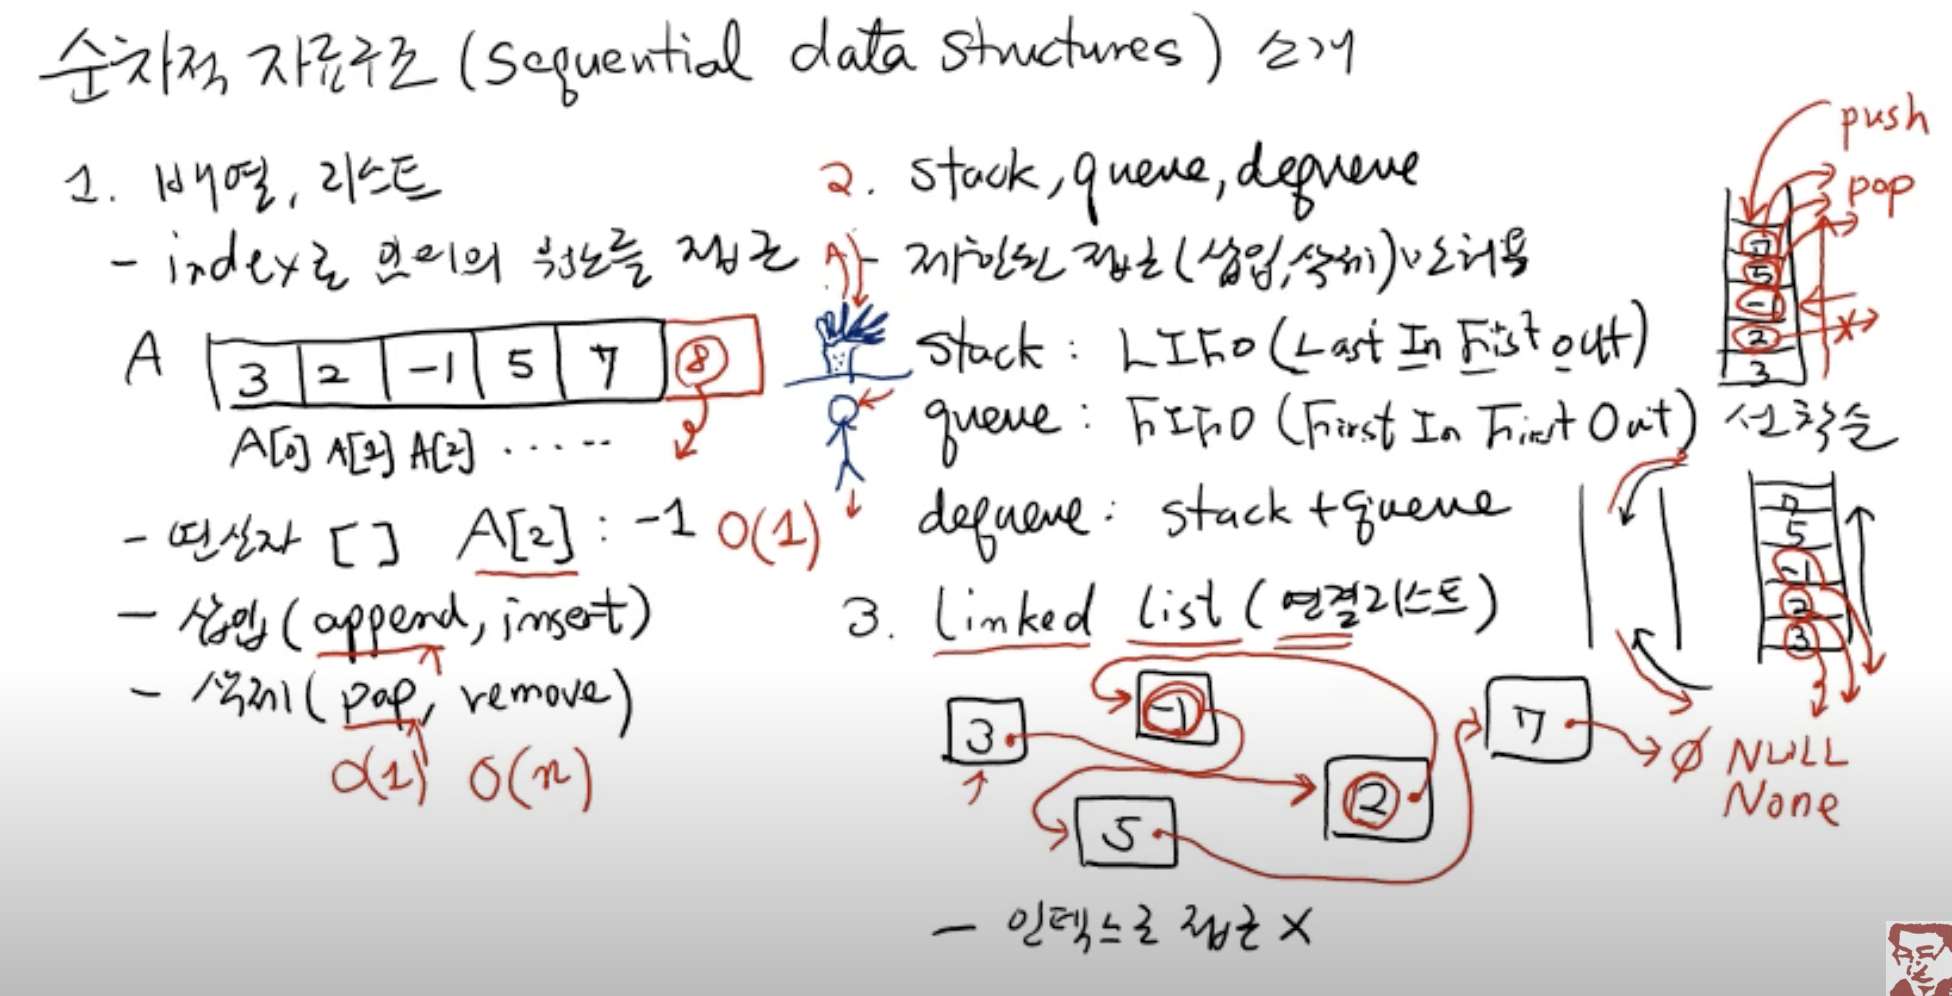 순차적 자료구조 (Sequential data structures) 소개
1. 배열, 리스트
- index로 임의의 원소를 접근
A
3 2 -1 5 7 8
A[0] A[1] A[2] ......
- 연산자 [ ] A[2] : -1 O(1)
- 삽입 (append, insert)
- 삭제 (pop, remove)
O(1) O(n)
2. stack, queue, dequeue
A
- 제한된 접근 (삽입, 삭제)만 허용
stack : LIFO (Last In First Out)
queue : FIFO (First In First Out) 선착순
dequeue : stack + queue
push
pop
7
5
-1
2
3
7
5
-1
2
3
3. Linked List (연결리스트)
3 -1 2 5 7
Ø NULL
None
- 인덱스로 접근 X